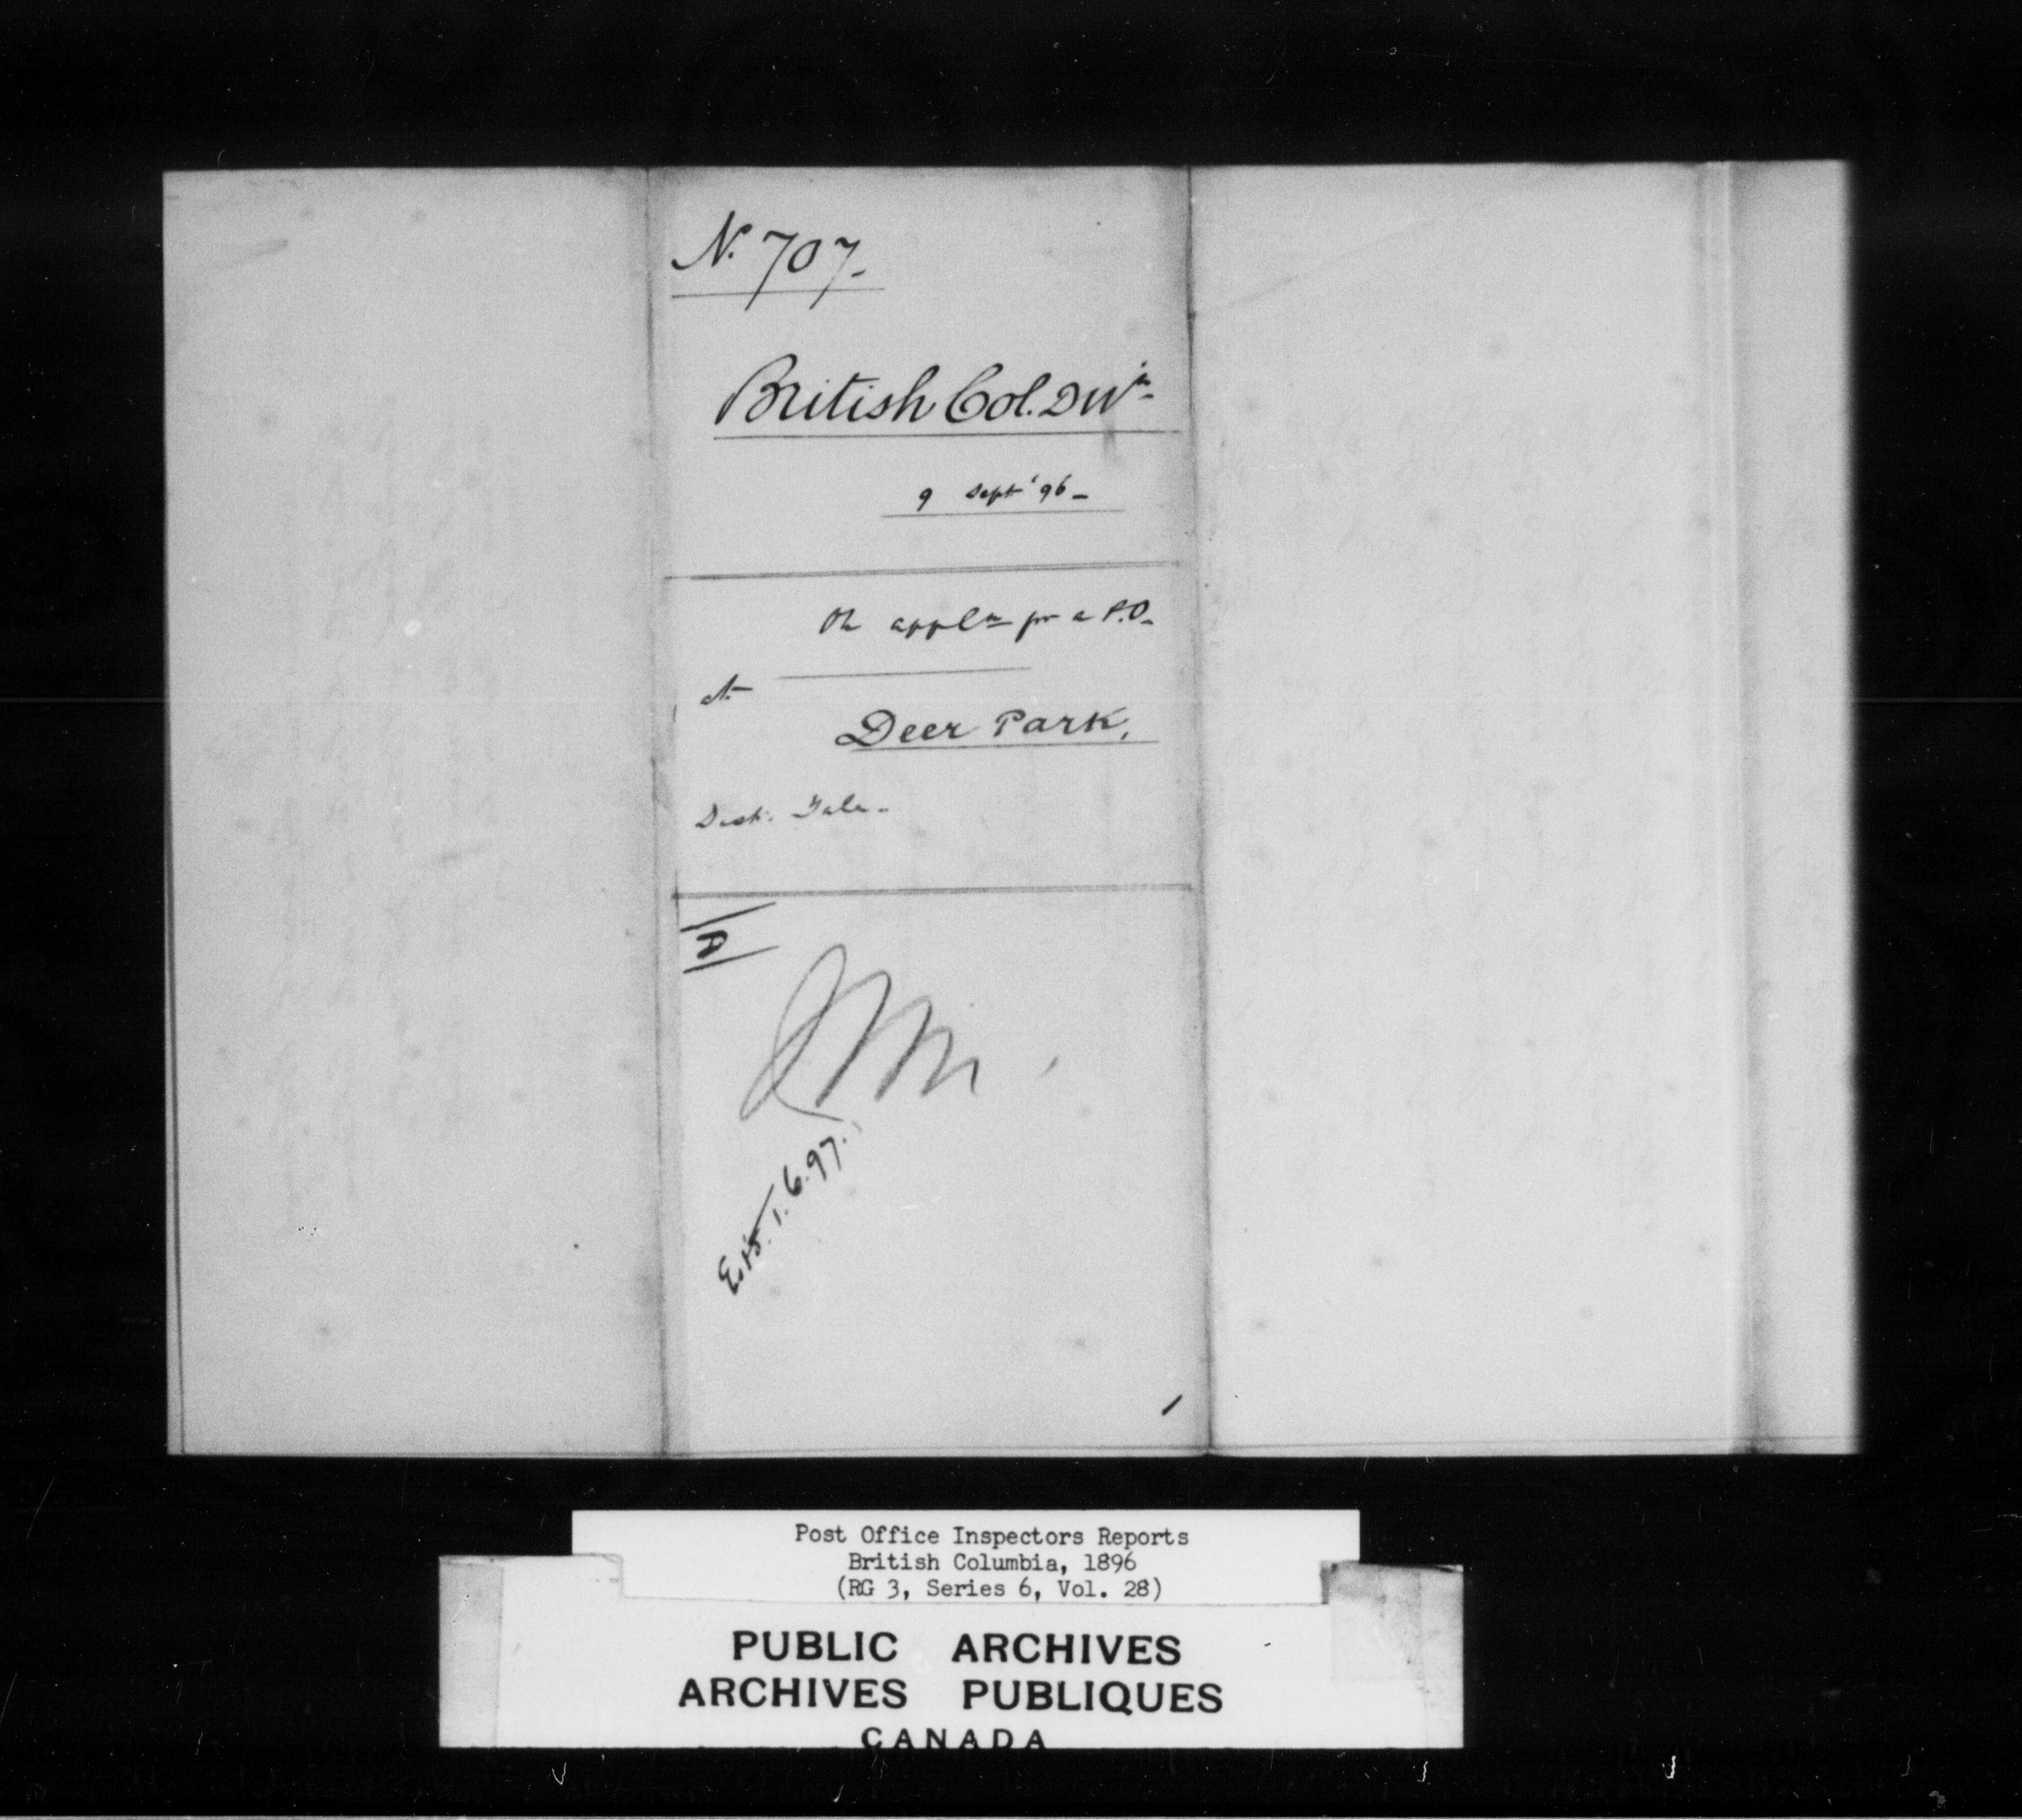 N. 707-
British Col. Divn-
9 Sept '96-
On appln for a P.O.
at
Deer Park,
Dist. Yale-
Est. 1.6.97.
Post Office Inspectors Reports
British Columbia, 1896
(RG 3, Series 6, Vol. 28)
PUBLIC ARCHIVES
ARCHIVES PUBLIQUES
CANADA